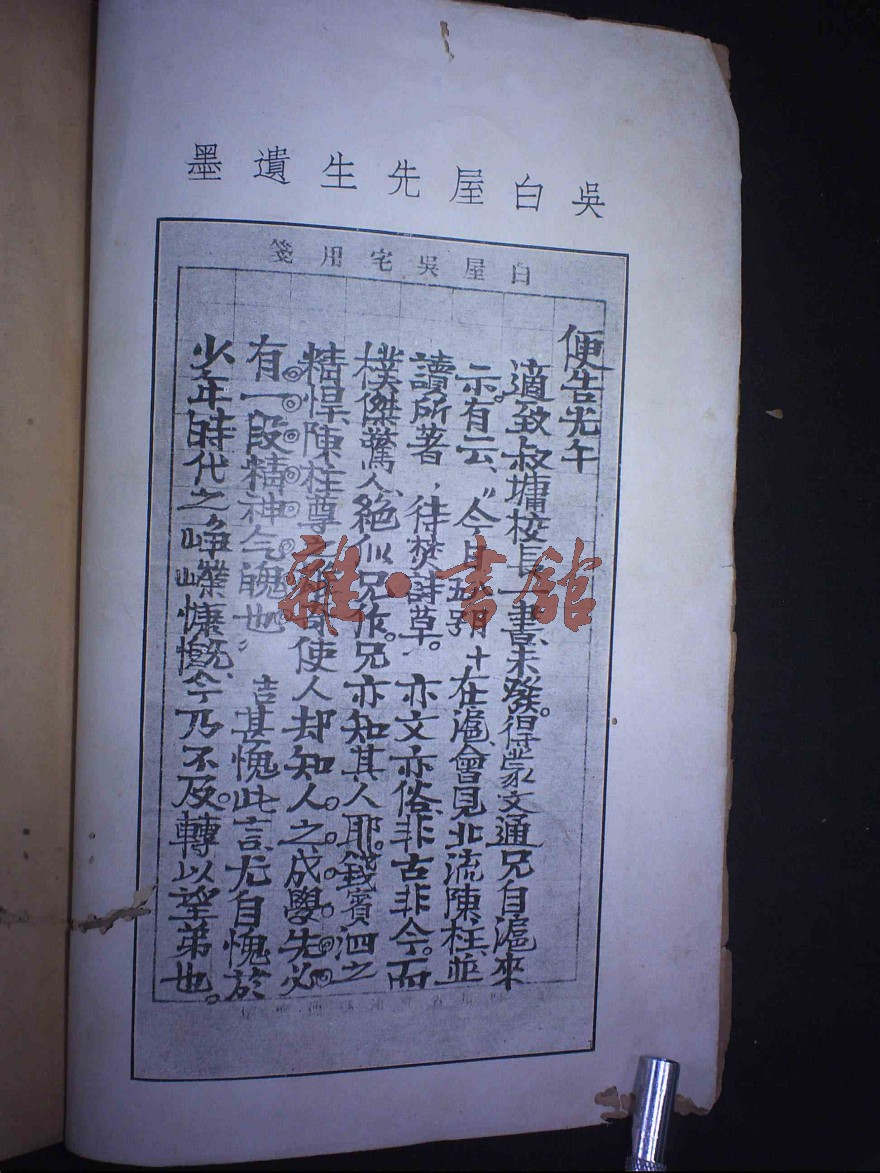 吳白屋先生遺墨
白屋吳宅用箋
便告光午
適致叔墉校長一書、未發。得蒙文通兄自滬來
示有云、“今日 在滬、會見北流陳柱、並
讀所著，待焚詩草。亦文亦俗、非古非今。而
樸傑驚人、絕似兄作。兄亦知其人耶。錢賓泗之
精悍、陳柱尊之 奇使人却知人之成學先必
有一段精神氣魄也”吉甚愧此言、尤自愧於
少年時代之崢嶸慷慨、今乃不及。轉以望弟也。
雜·書館